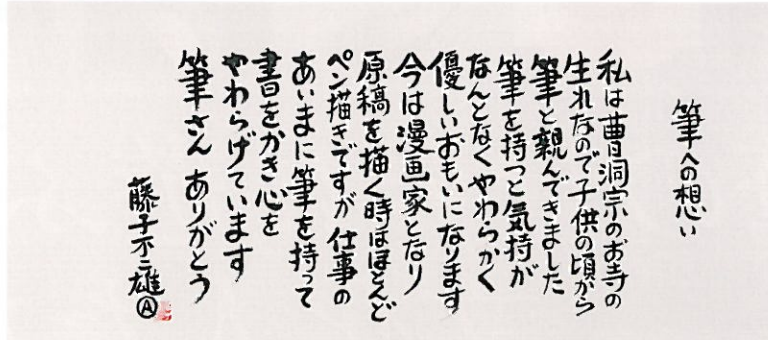 筆への想い
私は曹洞宗のお寺の
生れなので子供の頃から
筆と親んできました
筆を持つと気持が
なんとなくやわらかく
優しいおもいになります
今は漫画家となり
原稿を描く時はほとんど
ペン描きですが 仕事の
あいまに筆を持って
書をかき心を
やわらげています
筆さん ありがとう
藤子不二雄Ⓐ